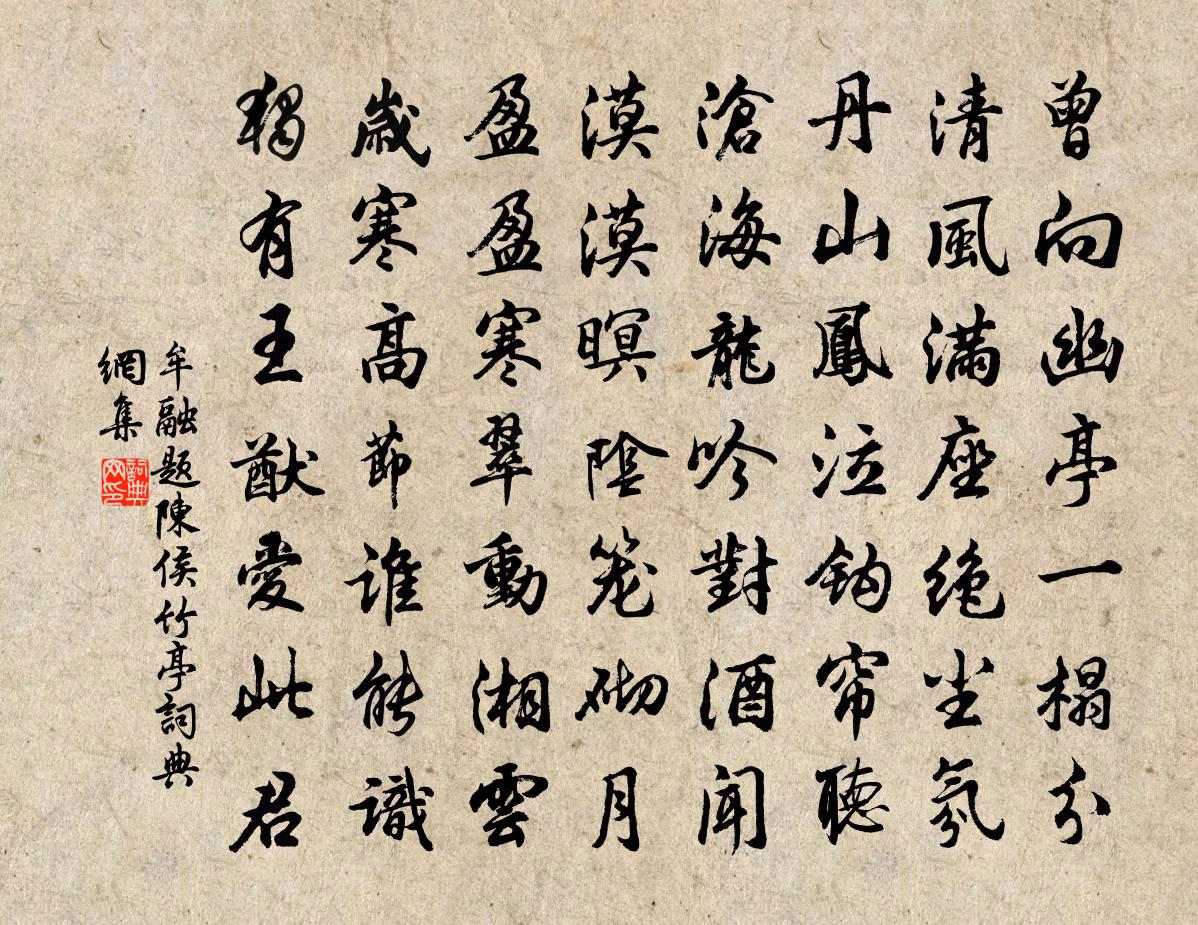 曾向幽亭一榻分
清風滿座絶尘氛
丹山鳳泣钩帘聽
滄海龍吟對酒聞
漠漠暝陰笼砌月
盈盈寒翠動湘雲
歲寒高節谁能識
獨有王猷愛此君
牟融题陳侯竹亭詞典
網集
詞典
网印